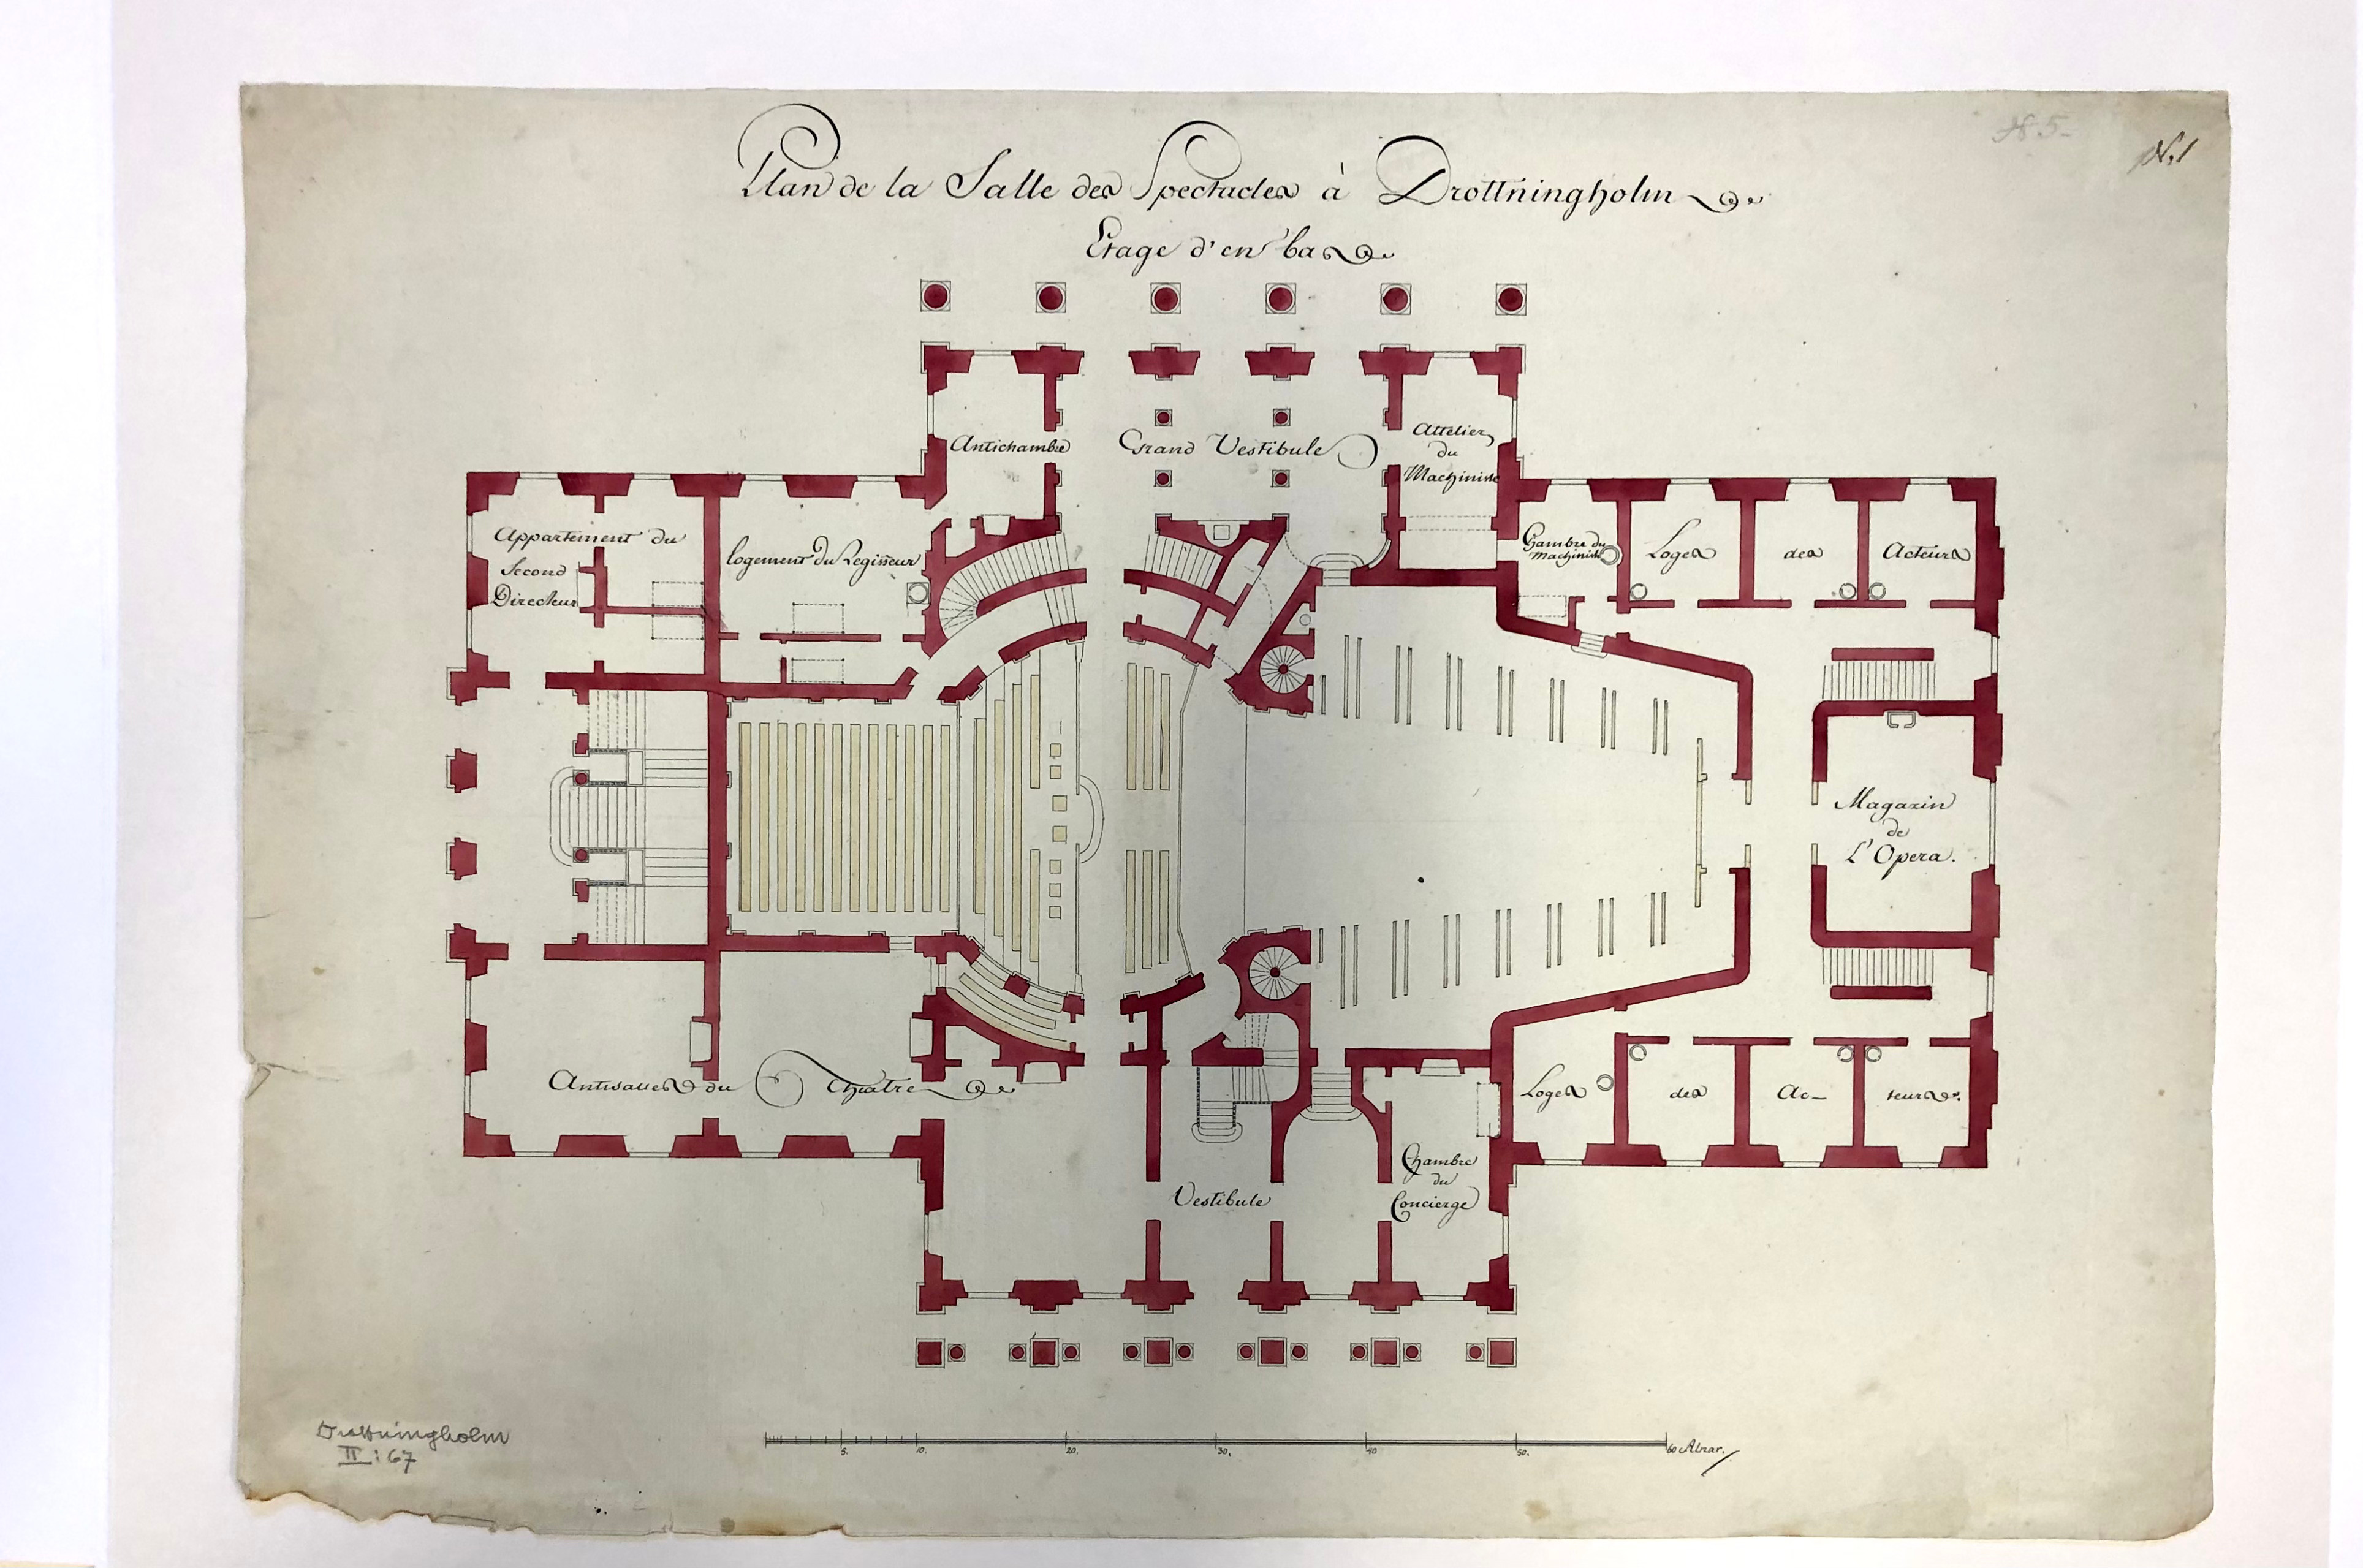 N. 5.
N. 1
Plan de la Salle des Spectacles à Drottningholm
Etage d'en bas
Antichambre
Grand Vestibule
Attelier
du
Machiniste
Appartement du
Second
Directeur
logement du Regisseur
Chambre du
Machiniste
Loges des Acteurs
Magazin
de
L'Opera.
Antisalles du Théatre
Vestibule
Chambre
du
Concierge
Loges des Ac- teurs.
5. 10. 20. 30. 40 50. 60 Alnar.
Drottningholm
II: 67